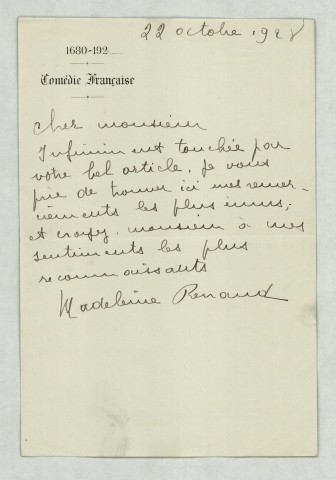 22 octobre 1928
1680-192
Comédie Française
Cher monsieur
Infiniment touchée par
votre bel article, je vous
prie de trouver ici mes remer-
ciements les plus émus;
et croyez, monsieur à mes
sentiments les plus
reconnaissants
Madeleine Renaud